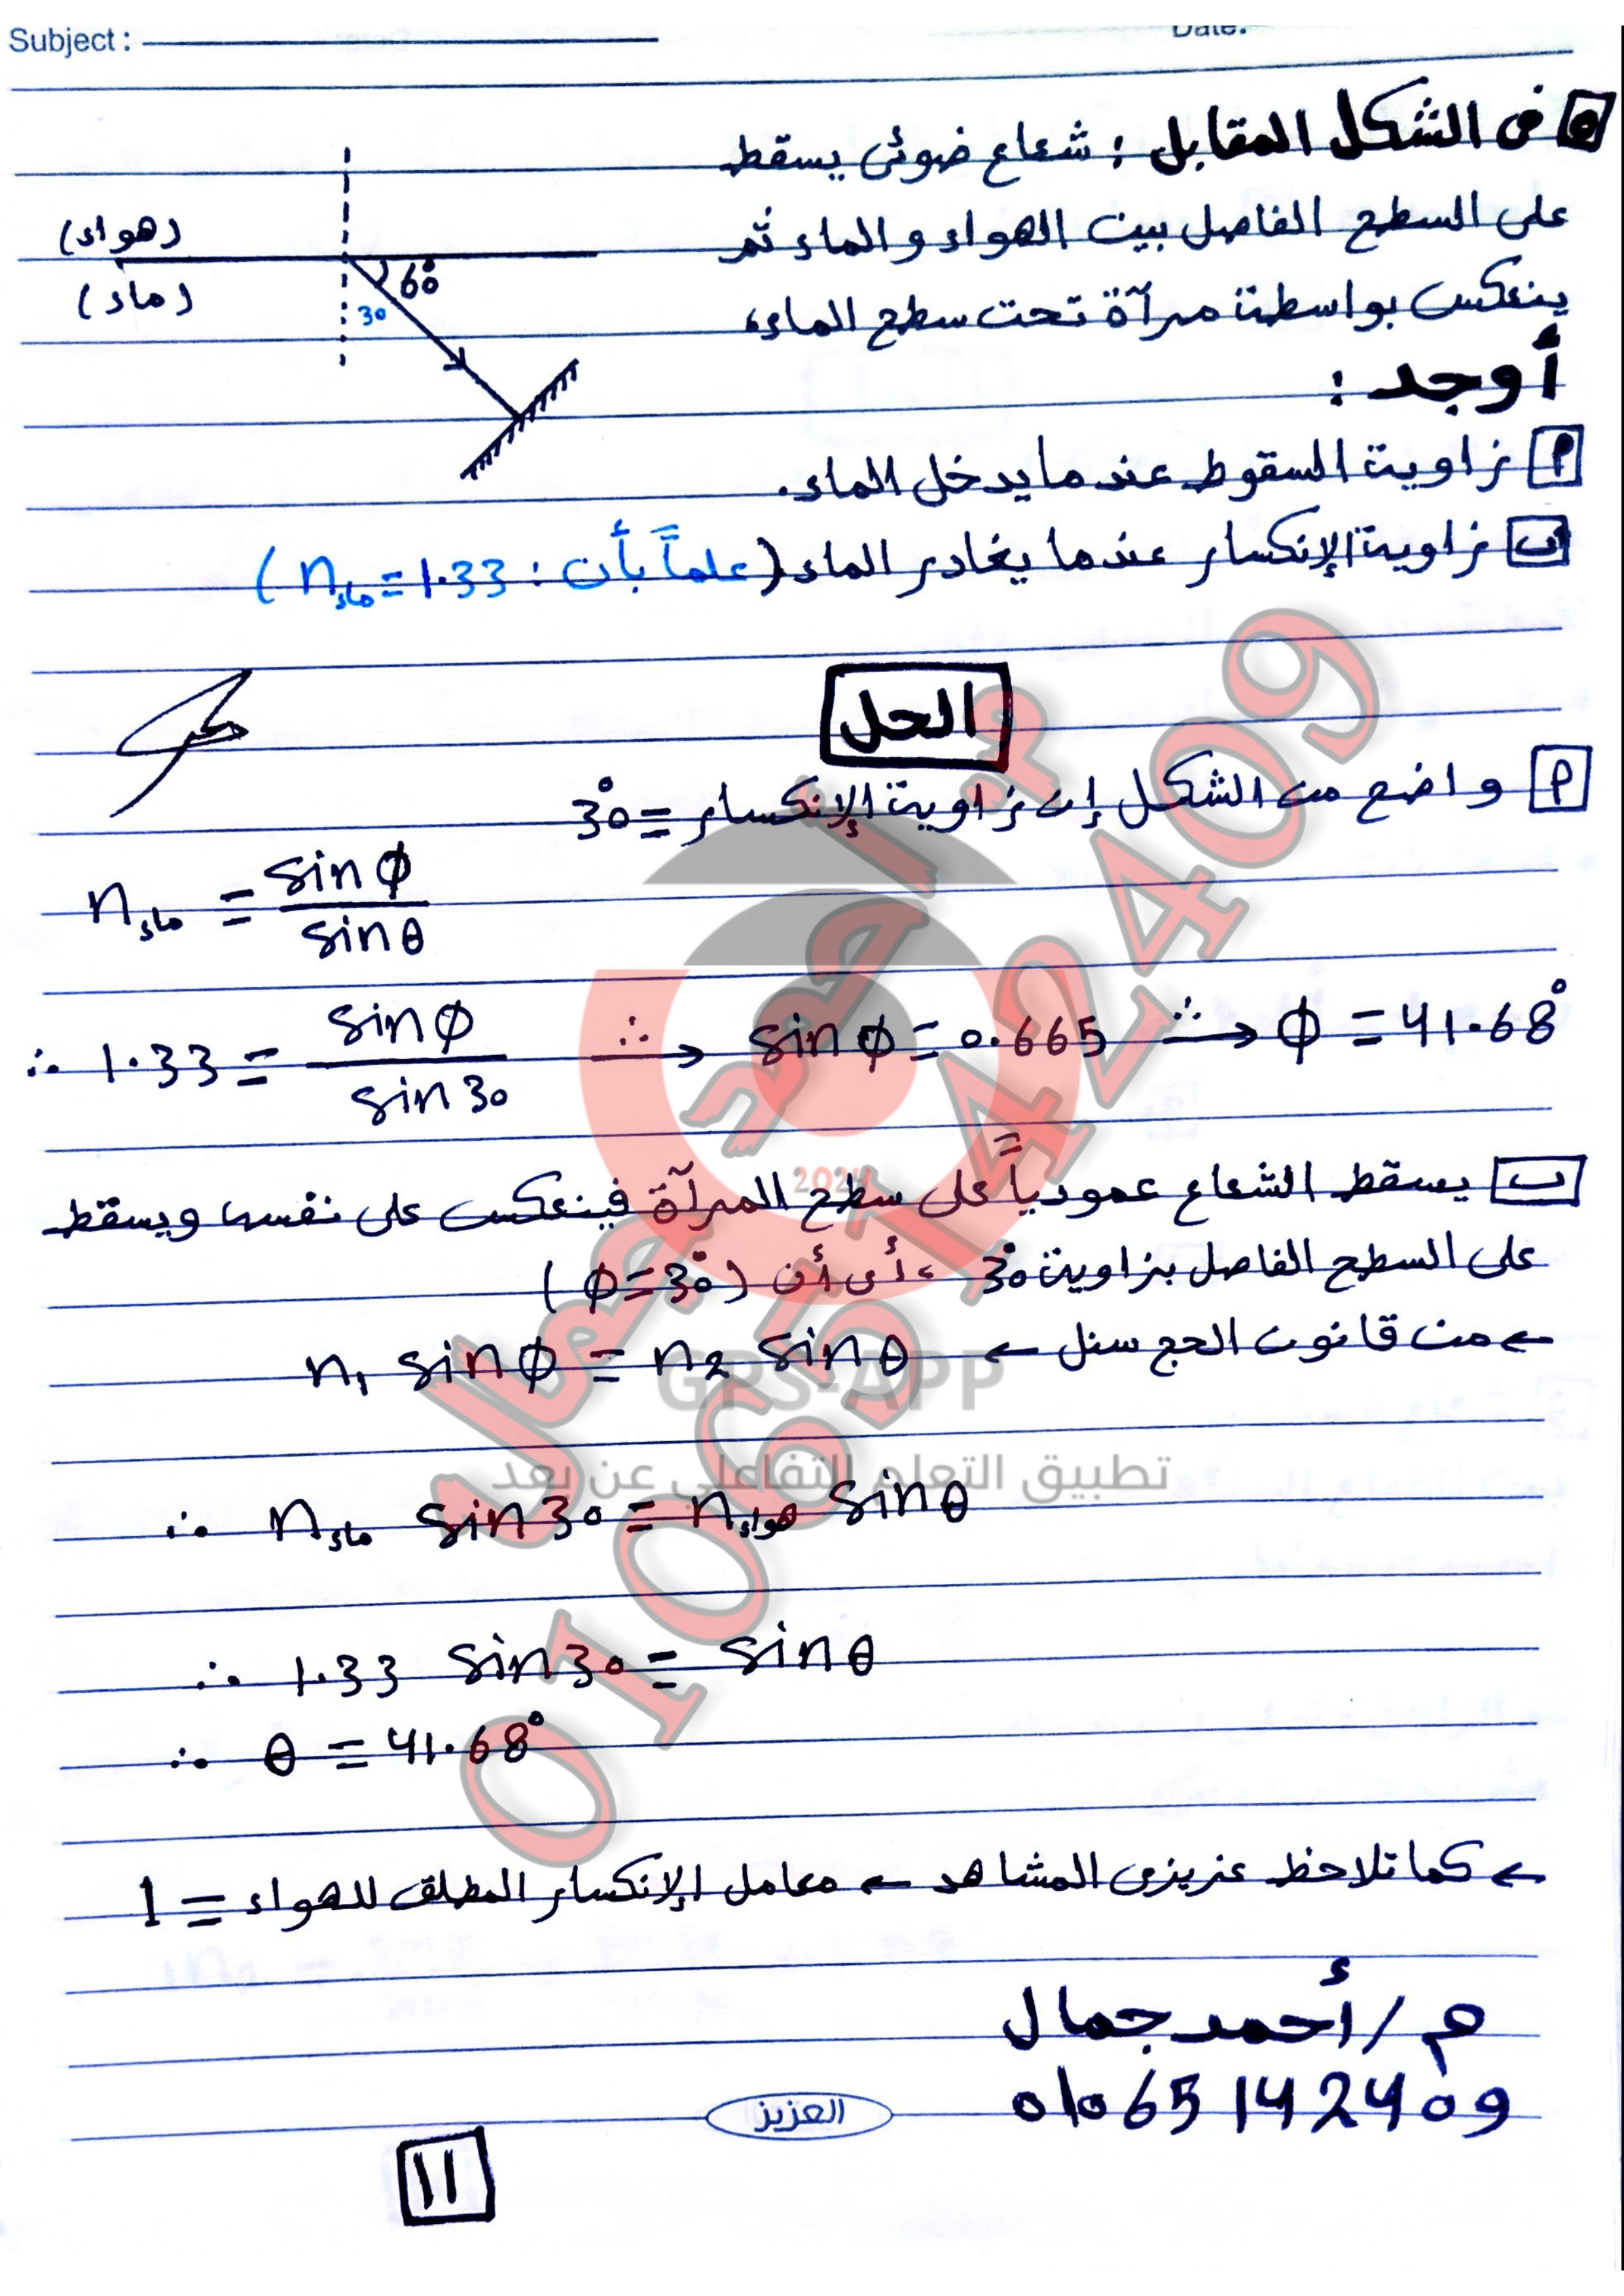 Subject :
Date:
٥ فى الشكل المقابل : شعاع ضوئى يسقط
على السطح الفاصل بين الهواء والماء ثم
ينعكس بواسطة مرآة تحت سطح الماء،
أوجد :
(هواء)
(ماء)
60°
30
أ زاوية السقوط عندما يدخل الماء.
ب زاوية الإنكسار عندما يغادر الماء (علماً بأن : n ماء = 1.33)
الحل
أ واضح من الشكل إن زاوية الإنكسار = 30°
n ماء = sin ϕ / sin θ
∴ 1.33 = sin ϕ / sin 30 ∴→ sin ϕ = 0.665 ∴→ ϕ = 41.68°
ب يسقط الشعاع عمودياً على سطح المرآة فينعكس على نفسه ويسقط
على السطح الفاصل بزاوية 30° ، أى أن (ϕ = 30°)
← من قانون الحج سنل ← n1 sin ϕ = n2 sin θ
∴ n ماء sin 30 = n هواء sin θ
∴ 1.33 sin 30 = sin θ
∴ θ = 41.68°
← كما تلاحظ عزيزى المشاهد ← معامل الإنكسار المطلق للهواء = 1
م / أحمد جمال
01065142409
العزيز
11
م أحمد جمال
01065142409
2024
GPS-APP
تطبيق التعلم التفاعلي عن بعد